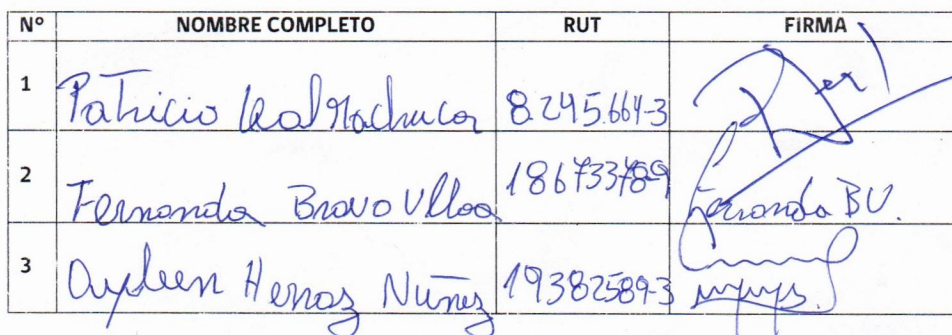 Nº NOMBRE COMPLETO RUT FIRMA
1 Patricio Leal Machuca 8.245.664-3
2 Fernanda Bravo Ulloa 18673378-9 Fernanda BU.
3 Núñez 19382589-3